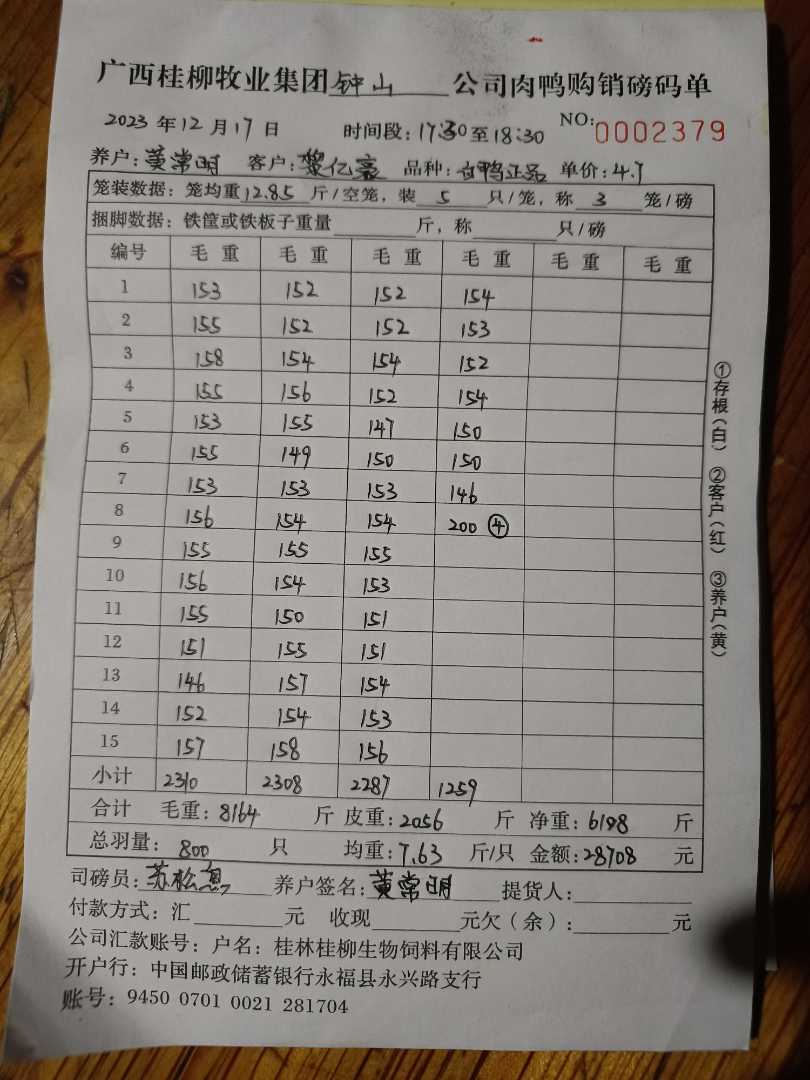 广西桂柳牧业集团钟山公司肉鸭购销磅码单
2023年12月17日 时间段:17:30至18:30 NO:0002379
养户:黄常明 客户:黎亿豪 品种:白鸭正品 单价:4.7
笼装数据:笼均重12.85斤/空笼,装5只/笼,称3笼/磅
捆脚数据:铁筐或铁板子重量 斤,称 只/磅
编号 毛重 毛重 毛重 毛重 毛重 毛重
1 153 152 152 154
2 155 152 152 153
3 158 154 154 152
4 155 156 152 154
5 153 155 147 150
6 155 149 150 150
7 153 153 153 146
8 156 154 154 200 ④
9 155 155 155
10 156 154 153
11 155 150 151
12 151 155 151
13 146 157 154
14 152 154 153
15 157 158 156
小计 2310 2308 2287 1259
合计 毛重:8164 斤 皮重:2056 斤 净重:6108 斤
总羽量:800 只 均重:7.63 斤/只 金额:28708 元
司磅员:苏松 养户签名:黄常明 提货人:
付款方式:汇 元 收现 元欠(余): 元
公司汇款账号:户名:桂林桂柳生物饲料有限公司
开户行:中国邮政储蓄银行永福县永兴路支行
账号:9450 0701 0021 281704
①存根(白) ②客户(红) ③养户(黄)